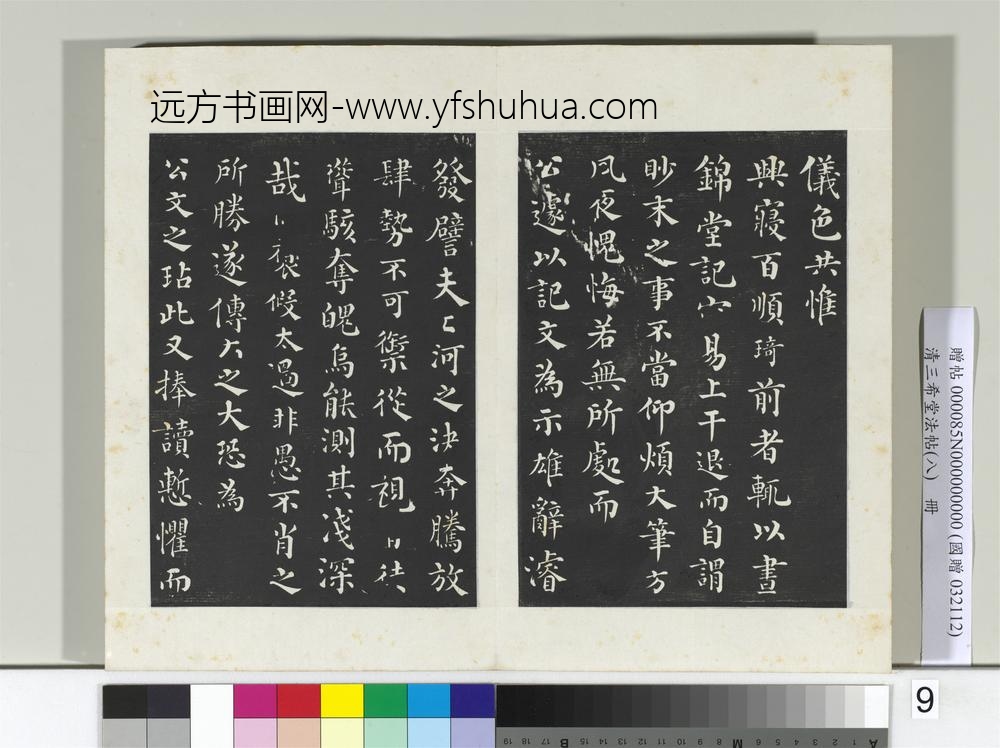 远方书画网-www.yfshuhua.com
儀色共惟
興寢百順琦前者輒以晝
錦堂記易上干退而自謂
眇末之事不當仰煩大筆方
夙夜愧悔若無所處而
公遽以記文為示雄辭濬
發譬夫河之決奔騰放
肆勢不可禦從而視徒
聳駭奪魄烏能測其淺深
哉褒假太過非愚不肖之
所勝遂傳之大恐為
公文之玷此又捧讀慙懼而
贈帖 000085N000000000 (國贈 032112)
清三希堂法帖(八) 冊
9